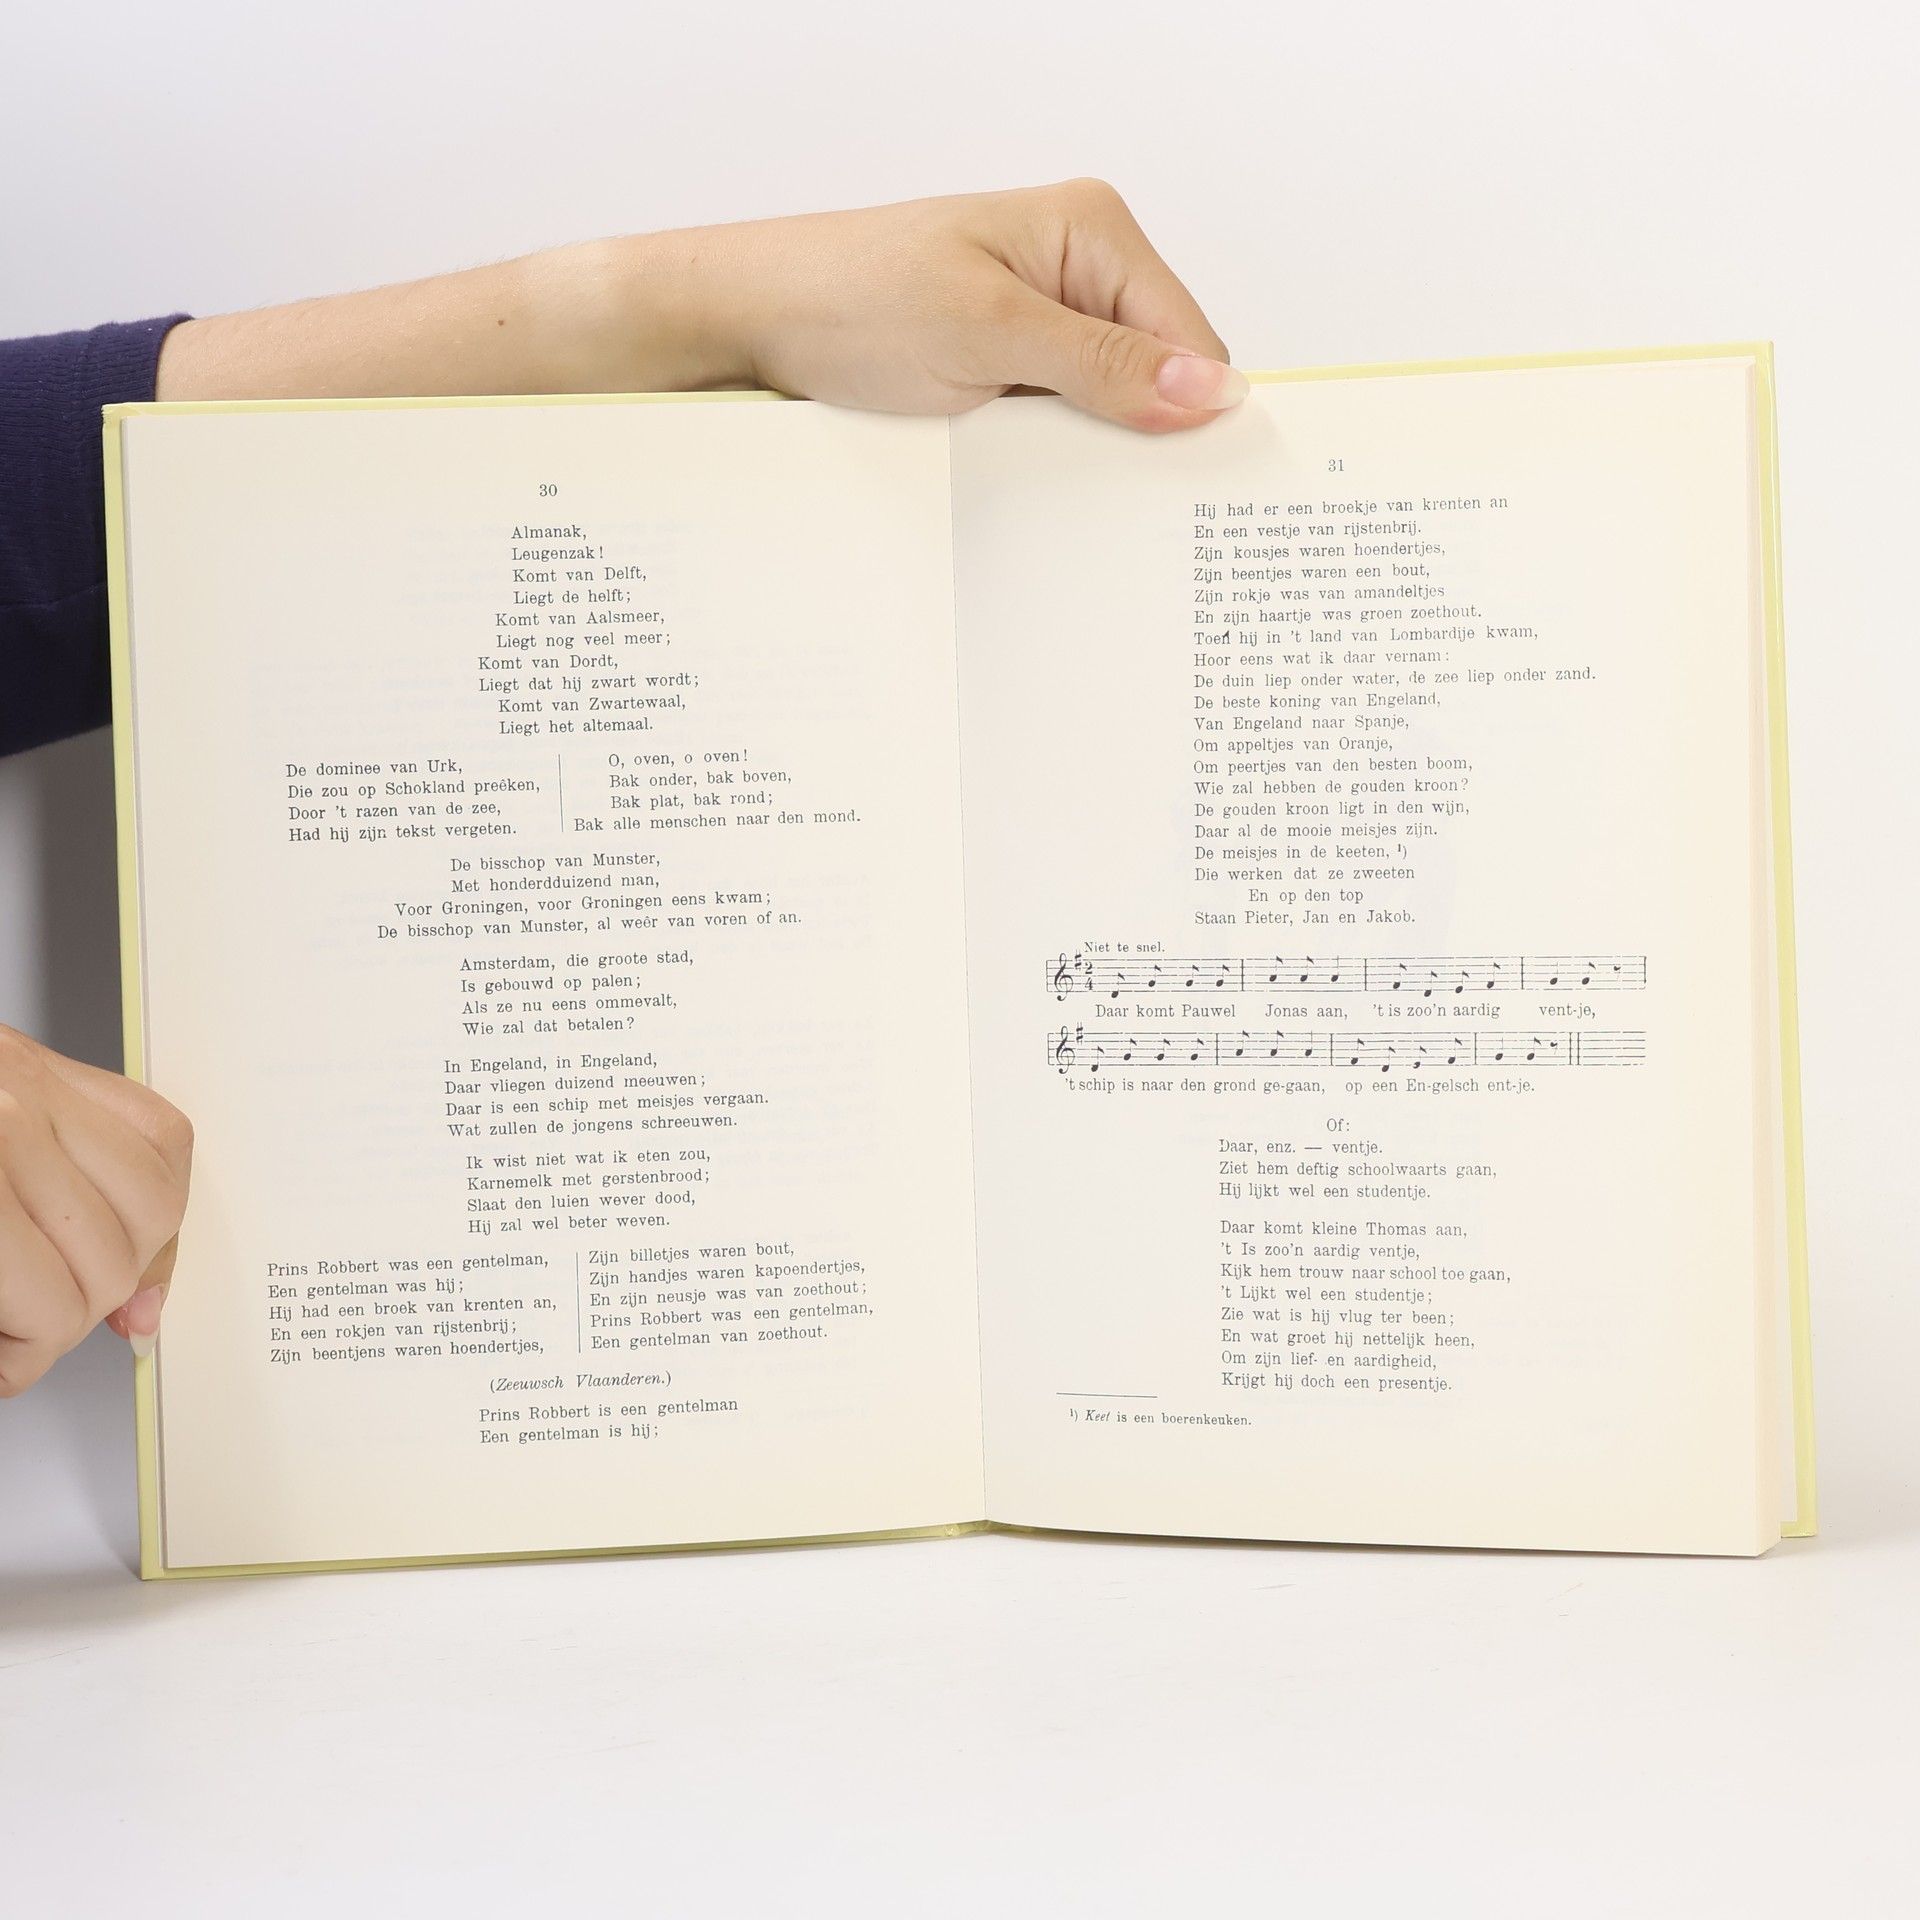 30
Almanak,
Leugenzak!
Komt van Delft,
Liegt de helft;
Komt van Aalsmeer,
Liegt nog veel meer;
Komt van Dordt,
Liegt dat hij zwart wordt;
Komt van Zwartewaal,
Liegt het altemaal.
De dominee van Urk,
Die zou op Schokland preêken,
Door 't razen van de zee,
Had hij zijn tekst vergeten.
O, oven, o oven!
Bak onder, bak boven,
Bak plat, bak rond;
Bak alle menschen naar den mond.
De bisschop van Munster,
Met honderdduizend man,
Voor Groningen, voor Groningen eens kwam;
De bisschop van Munster, al weêr van voren of an.
Amsterdam, die groote stad,
Is gebouwd op palen;
Als ze nu eens ommevalt,
Wie zal dat betalen?
In Engeland, in Engeland,
Daar vliegen duizend meeuwen;
Daar is een schip met meisjes vergaan.
Wat zullen de jongens schreeuwen.
Ik wist niet wat ik eten zou,
Karnemelk met gerstenbrood;
Slaat den luien wever dood,
Hij zal wel beter weven.
Prins Robbert was een gentelman,
Een gentelman was hij;
Hij had een broek van krenten an,
En een rokjen van rijstenbrij;
Zijn beentjens waren hoendertjes,
Zijn billetjes waren bout,
Zijn handjes waren kapoendertjes,
En zijn neusje was van zoethout;
Prins Robbert was een gentelman,
Een gentelman van zoethout.
(Zeeuwsch Vlaanderen.)
Prins Robbert is een gentelman
Een gentelman is hij;
31
Hij had er een broekje van krenten an
En een vestje van rijstenbrij.
Zijn kousjes waren hoendertjes,
Zijn beentjes waren een bout,
Zijn rokje was van amandeltjes
En zijn haartje was groen zoethout.
Toen hij in 't land van Lombardije kwam,
Hoor eens wat ik daar vernam:
De duin liep onder water, de zee liep onder zand.
De beste koning van Engeland,
Van Engeland naar Spanje,
Om appeltjes van Oranje,
Om peertjes van den besten boom,
Wie zal hebben de gouden kroon?
De gouden kroon ligt in den wijn,
Daar al de mooie meisjes zijn.
De meisjes in de keeten, ¹)
Die werken dat ze zweeten
En op den top
Staan Pieter, Jan en Jakob.
Niet te snel.
2
4
Daar komt Pauwel Jonas aan, 't is zoo'n aardig vent-je,
't schip is naar den grond ge-gaan, op een En-gelsch ent-je.
Of:
Daar, enz. — ventje.
Ziet hem deftig schoolwaarts gaan,
Hij lijkt wel een studentje.
Daar komt kleine Thomas aan,
't Is zoo'n aardig ventje,
Kijk hem trouw naar school toe gaan,
't Lijkt wel een studentje;
Zie wat is hij vlug ter been;
En wat groet hij nettelijk heen,
Om zijn lief- en aardigheid,
Krijgt hij doch een presentje.
¹) Keet is een boerenkeuken.